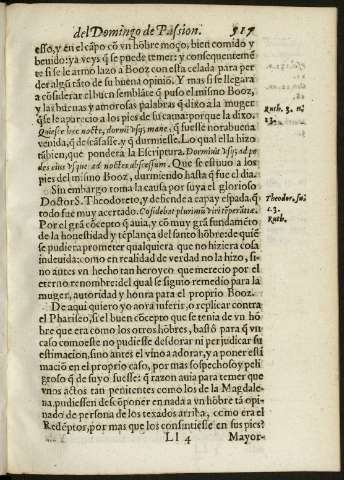 del Domingo de Passion. 517
esso, y en el cãpo cõ vn hõbre moço, bien comido y
bevido: ya veys q̃ se puede temer: y consequentemẽ
te si se le armò lazo a Booz con esta celada para per
der algũ tãto de su buena opiniõ. Y mas si se llegara
a cõsiderar el buen semblãte q̃ puso el mismo Booz,
y las buenas y amorosas palabras q̃ dixo a la muger
que le aparecio a los pies de su cama: porque la dixo.
Quiesce hac nocte, dormi vsq; mane, q̃ fuesse norabuena
venida, q̃ descãsasse, y q̃ durmiesse. Lo qual ella hizo
tãbien, que pondera la Escriptura. Dormiuit vsq; ad pe
des eius vsque ad noctis abscessum. Que se estuuo a los
pies del mismo Booz, durmiendo hasta q̃ fue el dia.
Sin embargo toma la causa por suya el glorioso
Doctor S. Theodoreto, y defiende a capa y espada, q̃
todo fue muy acertado. Cõfidebat plurimũ viri tẽperãtiæ.
Por el grã cõcepto q̃ auia, y cõ muy grã fundamẽto
de la honestidad y tẽplança del santo hõbre: de quiẽ
se pudiera prometer qualquiera que no hiziera cosa
indeuida: como en realidad de verdad no la hizo, si-
no antes vn hecho tan heroyco que merecio por el
eterno renombre: del qual se siguio remedio para la
muger, autoridad y honra para el proprio Booz.
De aqui quiero yo aora inferir, o replicar contra
el Phariseo, si el buen cõcepto que se tenia de vn hõ
bre que era como los otros hõbres, bastò para q̃ vn
caso como este no pudiesse desdorar ni perjudicar su
estimacion, sino antes el vino a adorar, y a poner esti
maciõ en el proprio caso, por mas sospechoso y peli
groso q̃ de suyo fuesse: q̃ razon auia para temer que
vnos actos tan penitentes como los de la Magdale
na, pudiessen descõponer en nada a vn hõbre tã opi-
nado de persona de los texados arriba, como era el
Redẽptor, por mas que los consintiesse en sus pies?
Ll 4 Mayor-
Ruth. 3. n.
13.
Theodor. su.
c. 3.
Ruth.